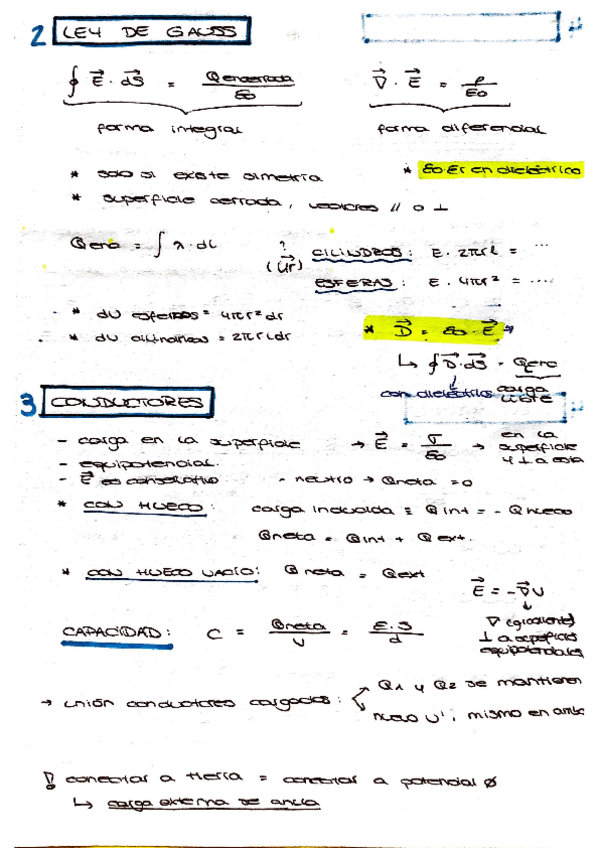 2 LEY DE GAUSS
∮ E⃗ · dS⃗ = Qencerrada / εo
∇⃗ · E⃗ = ρ / εo
forma integral
forma diferencial
* solo si existe simetría
* εo·εr en dieléctrico
* superficie cerrada, vectores // o ⊥
Qenc = ∫ λ · dL
? (u⃗r)
CILINDROS: E · 2πrL = ...
ESFERAS: E · 4πr² = ....
* dV esféricas = 4πr² dr
* dV cilíndricas = 2πrLdr
* D⃗ = εo · E⃗ →
↳ ∮ D⃗ · dS⃗ = Qenc
con dieléctrico
carga libre
3 CONDUCTORES
- carga en la superficie → E⃗ = σ / εo → en la superficie y ⊥ a esta
- equipotencial.
- E⃗ es conservativo
- neutro → Qneta = 0
* CON HUECO: carga inducida = Q int = - Q hueco
Qneta = Q int + Q ext.
* CON HUECO VACIO: Q neta = Qext
E⃗ = -∇⃗V
∇ (gradiente)
⊥ a superficies
equipotenciales
CAPACIDAD: C = Qneta / V = ε·S / d
→ unión conductores cargados:
Q1 y Q2 se mantienen
nuevo V', mismo en ambos
! conectar a tierra = conectar a potencial ∅
↳ carga externa se anula